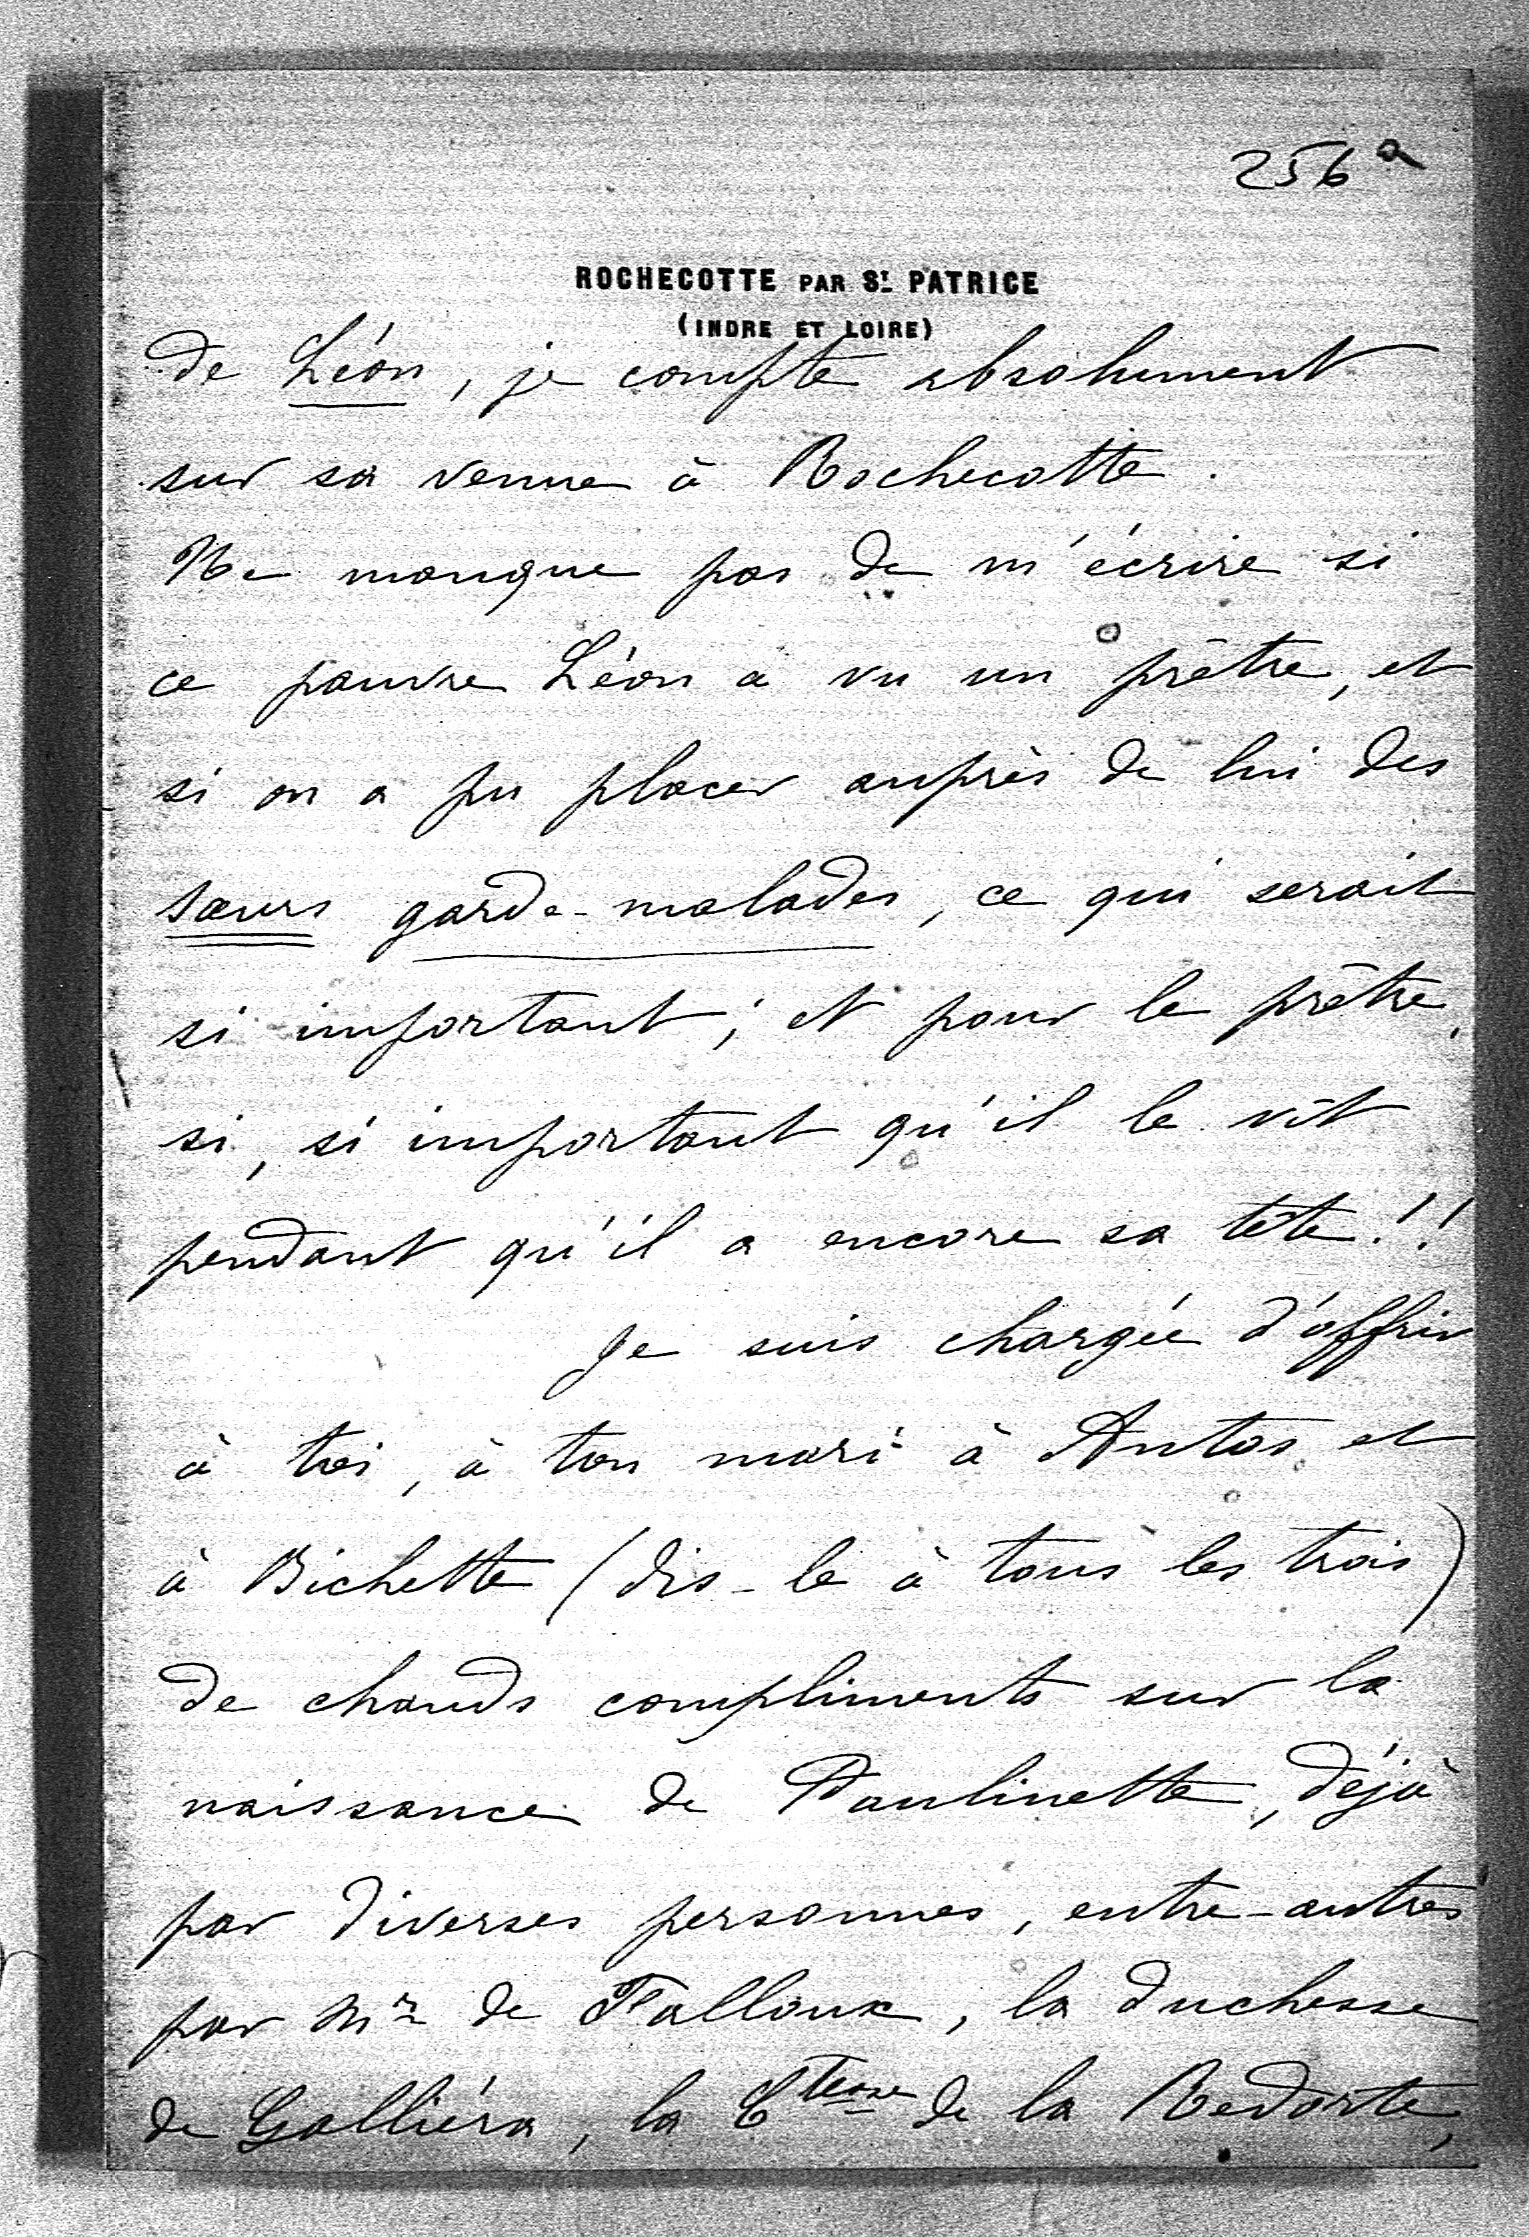 256a
ROCHECOTTE PAR St PATRICE
(INDRE ET LOIRE)
de Léon, je compte absolument
sur sa venue à Rochecotte.
Ne manque pas de m'écrire si
ce pauvre Léon a vu un prêtre, et
si on a pu placer auprès de lui des
sœurs garde-malades, ce qui serait
si important; et pour le prêtre,
si, si important qu'il le vît
pendant qu'il a encore sa tête!!
Je suis chargée d'offrir
à toi, à ton mari à Antos et
à Bichette (dis-le à tous les trois)
de chauds compliments sur la
naissance de Paulinette, déjà
par diverses personnes, entre-autres
par Mr de Falloux, la duchesse
de Galliéra, la Ctesse de la Redorte,